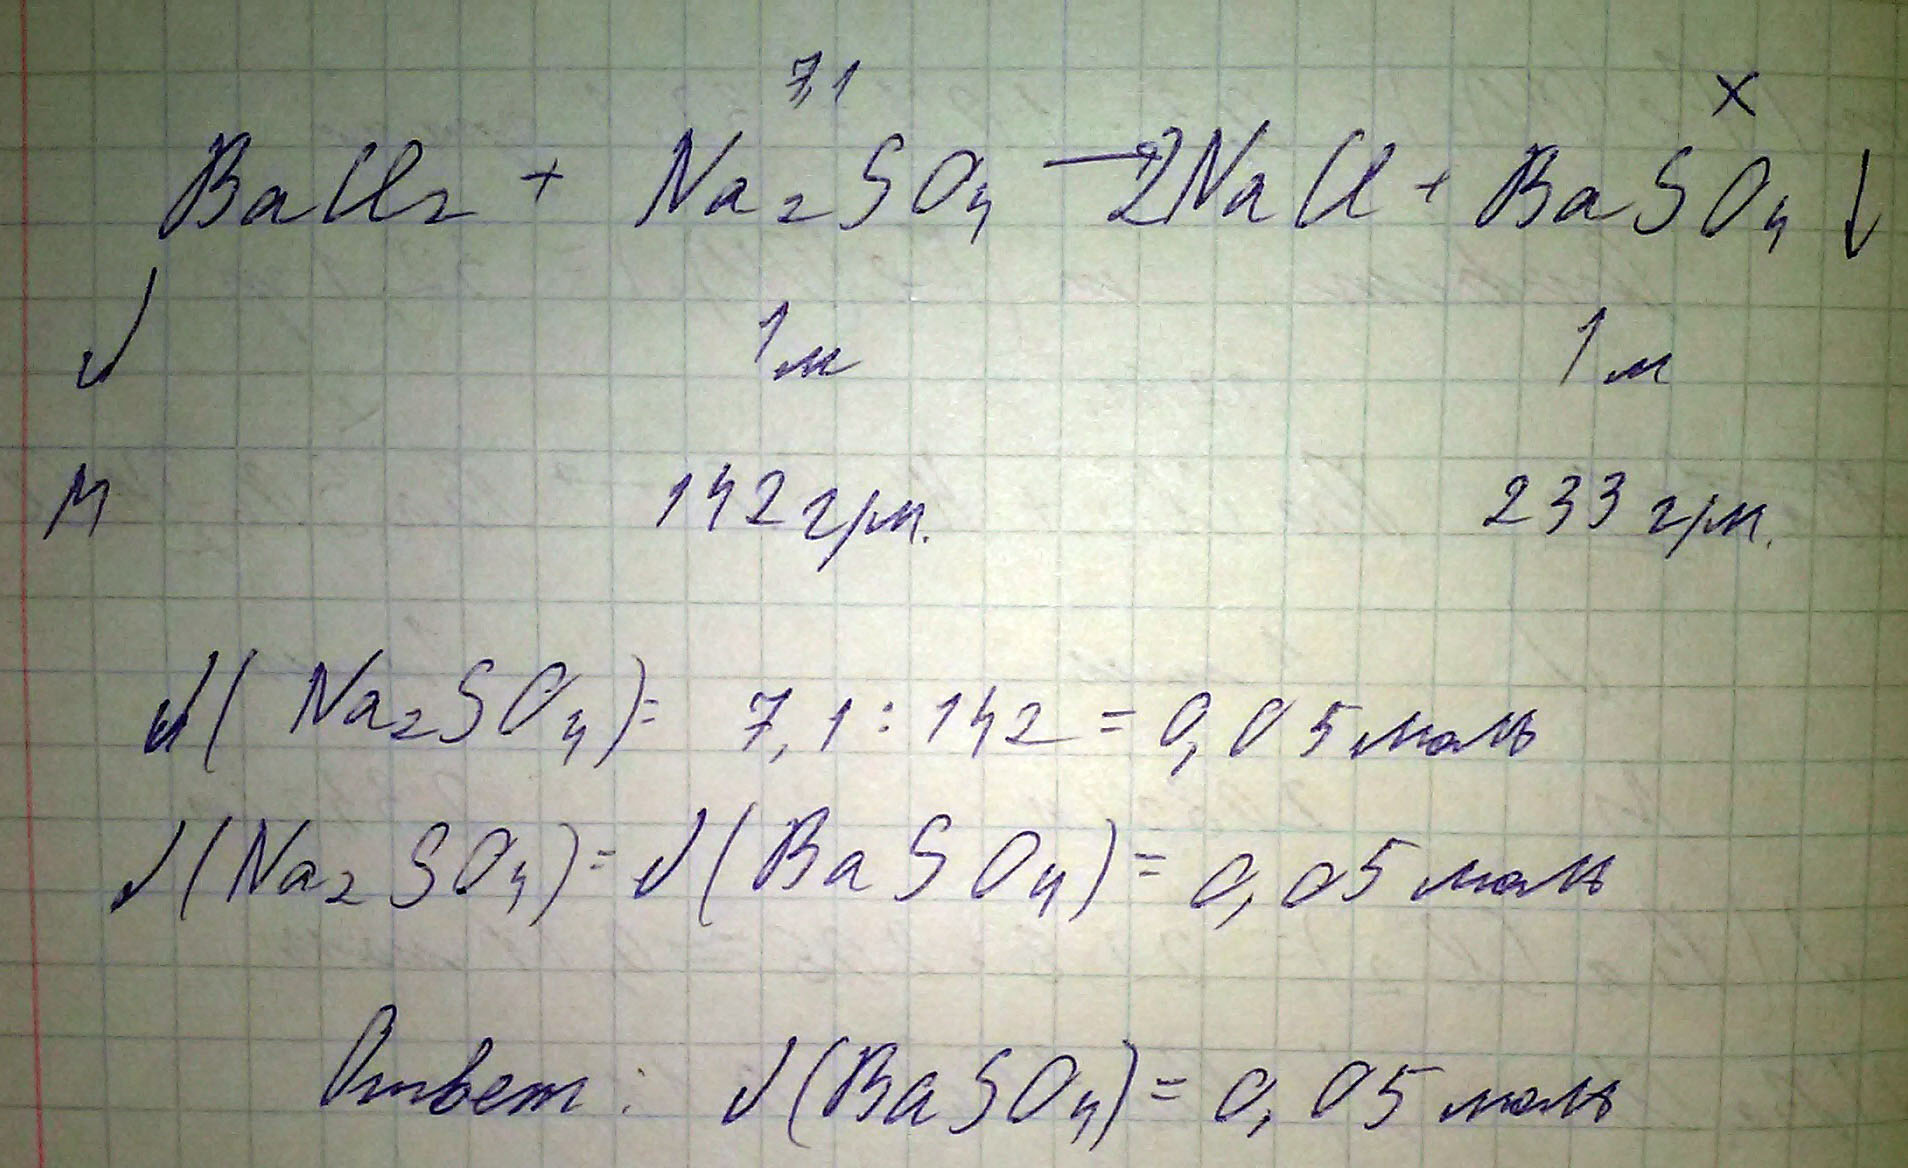 7,1 x
BaCl₂ + Na₂SO₄ → 2NaCl + BaSO₄ ↓
ν 1м 1м
M 142 грм. 233 грм.
ν(Na₂SO₄) = 7,1 : 142 = 0,05 моль
ν(Na₂SO₄) = ν(BaSO₄) = 0,05 моль
Ответ: ν(BaSO₄) = 0,05 моль